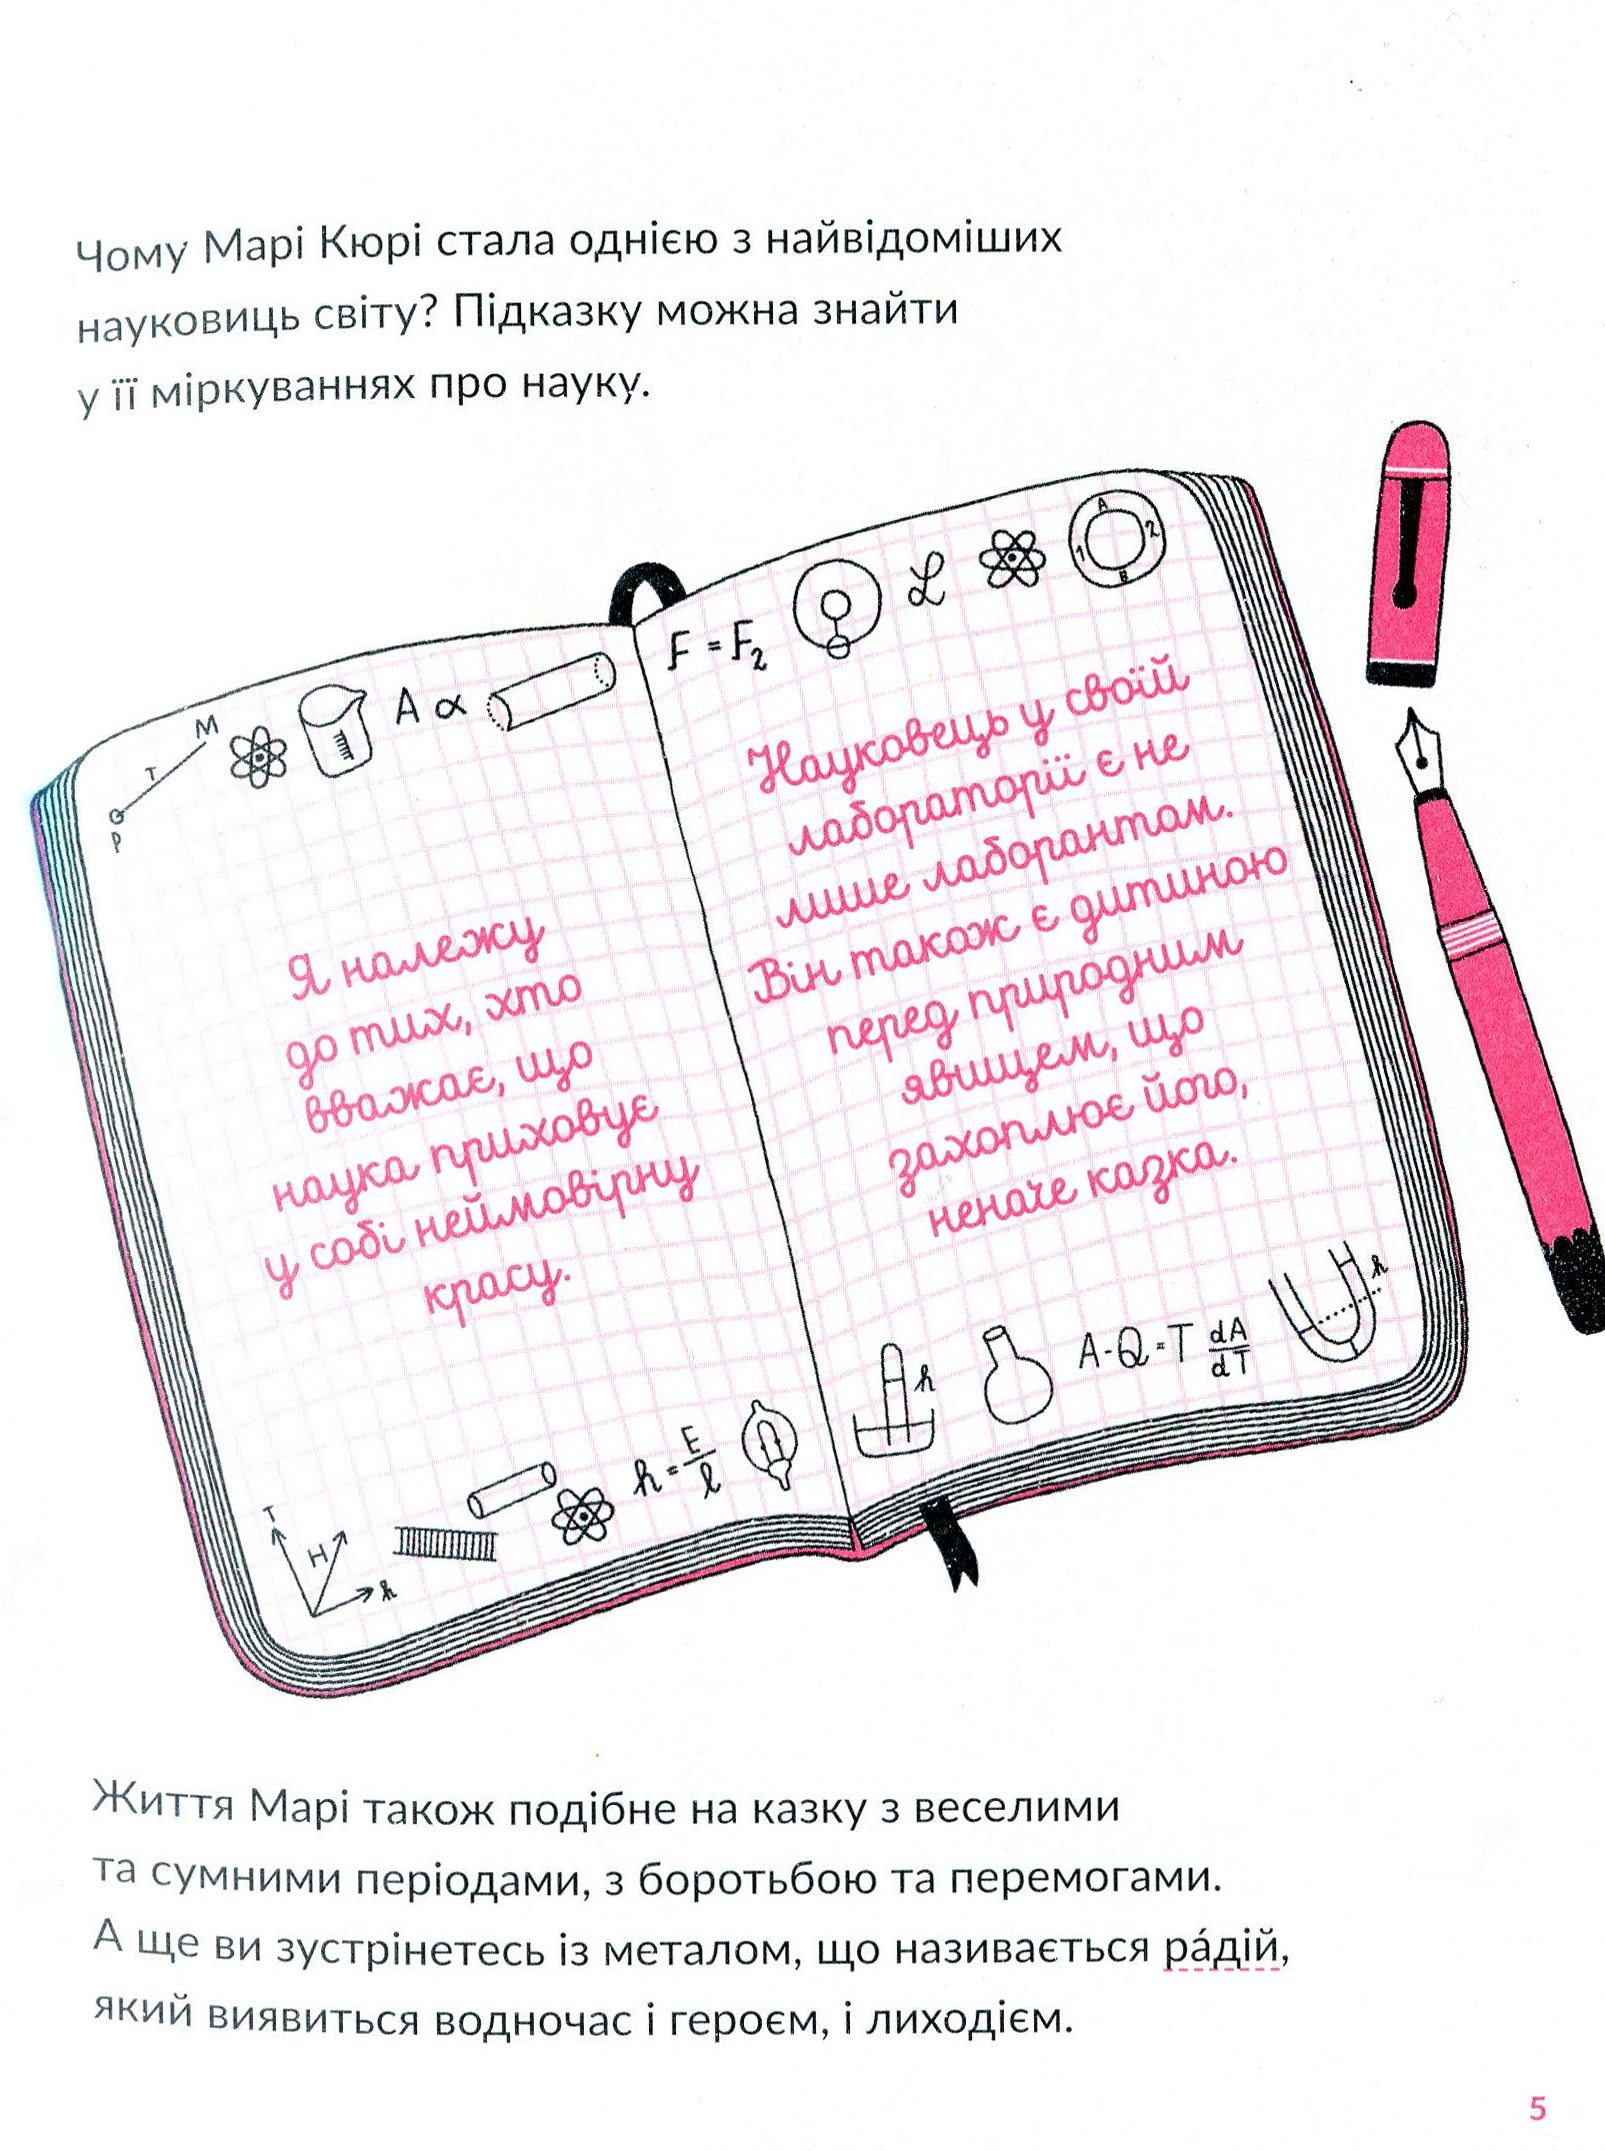 Чому Марі Кюрі стала однією з найвідоміших
науковиць світу? Підказку можна знайти
у її міркуваннях про науку.
M
T
P
A α
F = F₂
L
A
1
2
B
Я належу
до тих, хто
вважає, що
наука приховує
у собі неймовірну
красу.
Науковець у своїй
лабораторії є не
лише лаборантом.
Він також є дитиною
перед природним
явищем, що
захоплює його,
неначе казка.
T
H
h
h = E/l
h
A-Q=T dA/dT
h
Життя Марі також подібне на казку з веселими
та сумними періодами, з боротьбою та перемогами.
А ще ви зустрінетесь із металом, що називається ра́дій,
який виявиться водночас і героєм, і лиходієм.
5